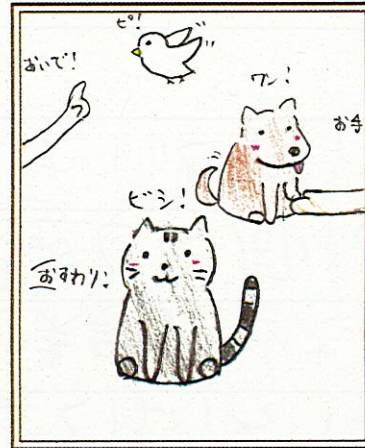 ピ!
おいで!
ワン!
お手
ビシ!
おすわり!